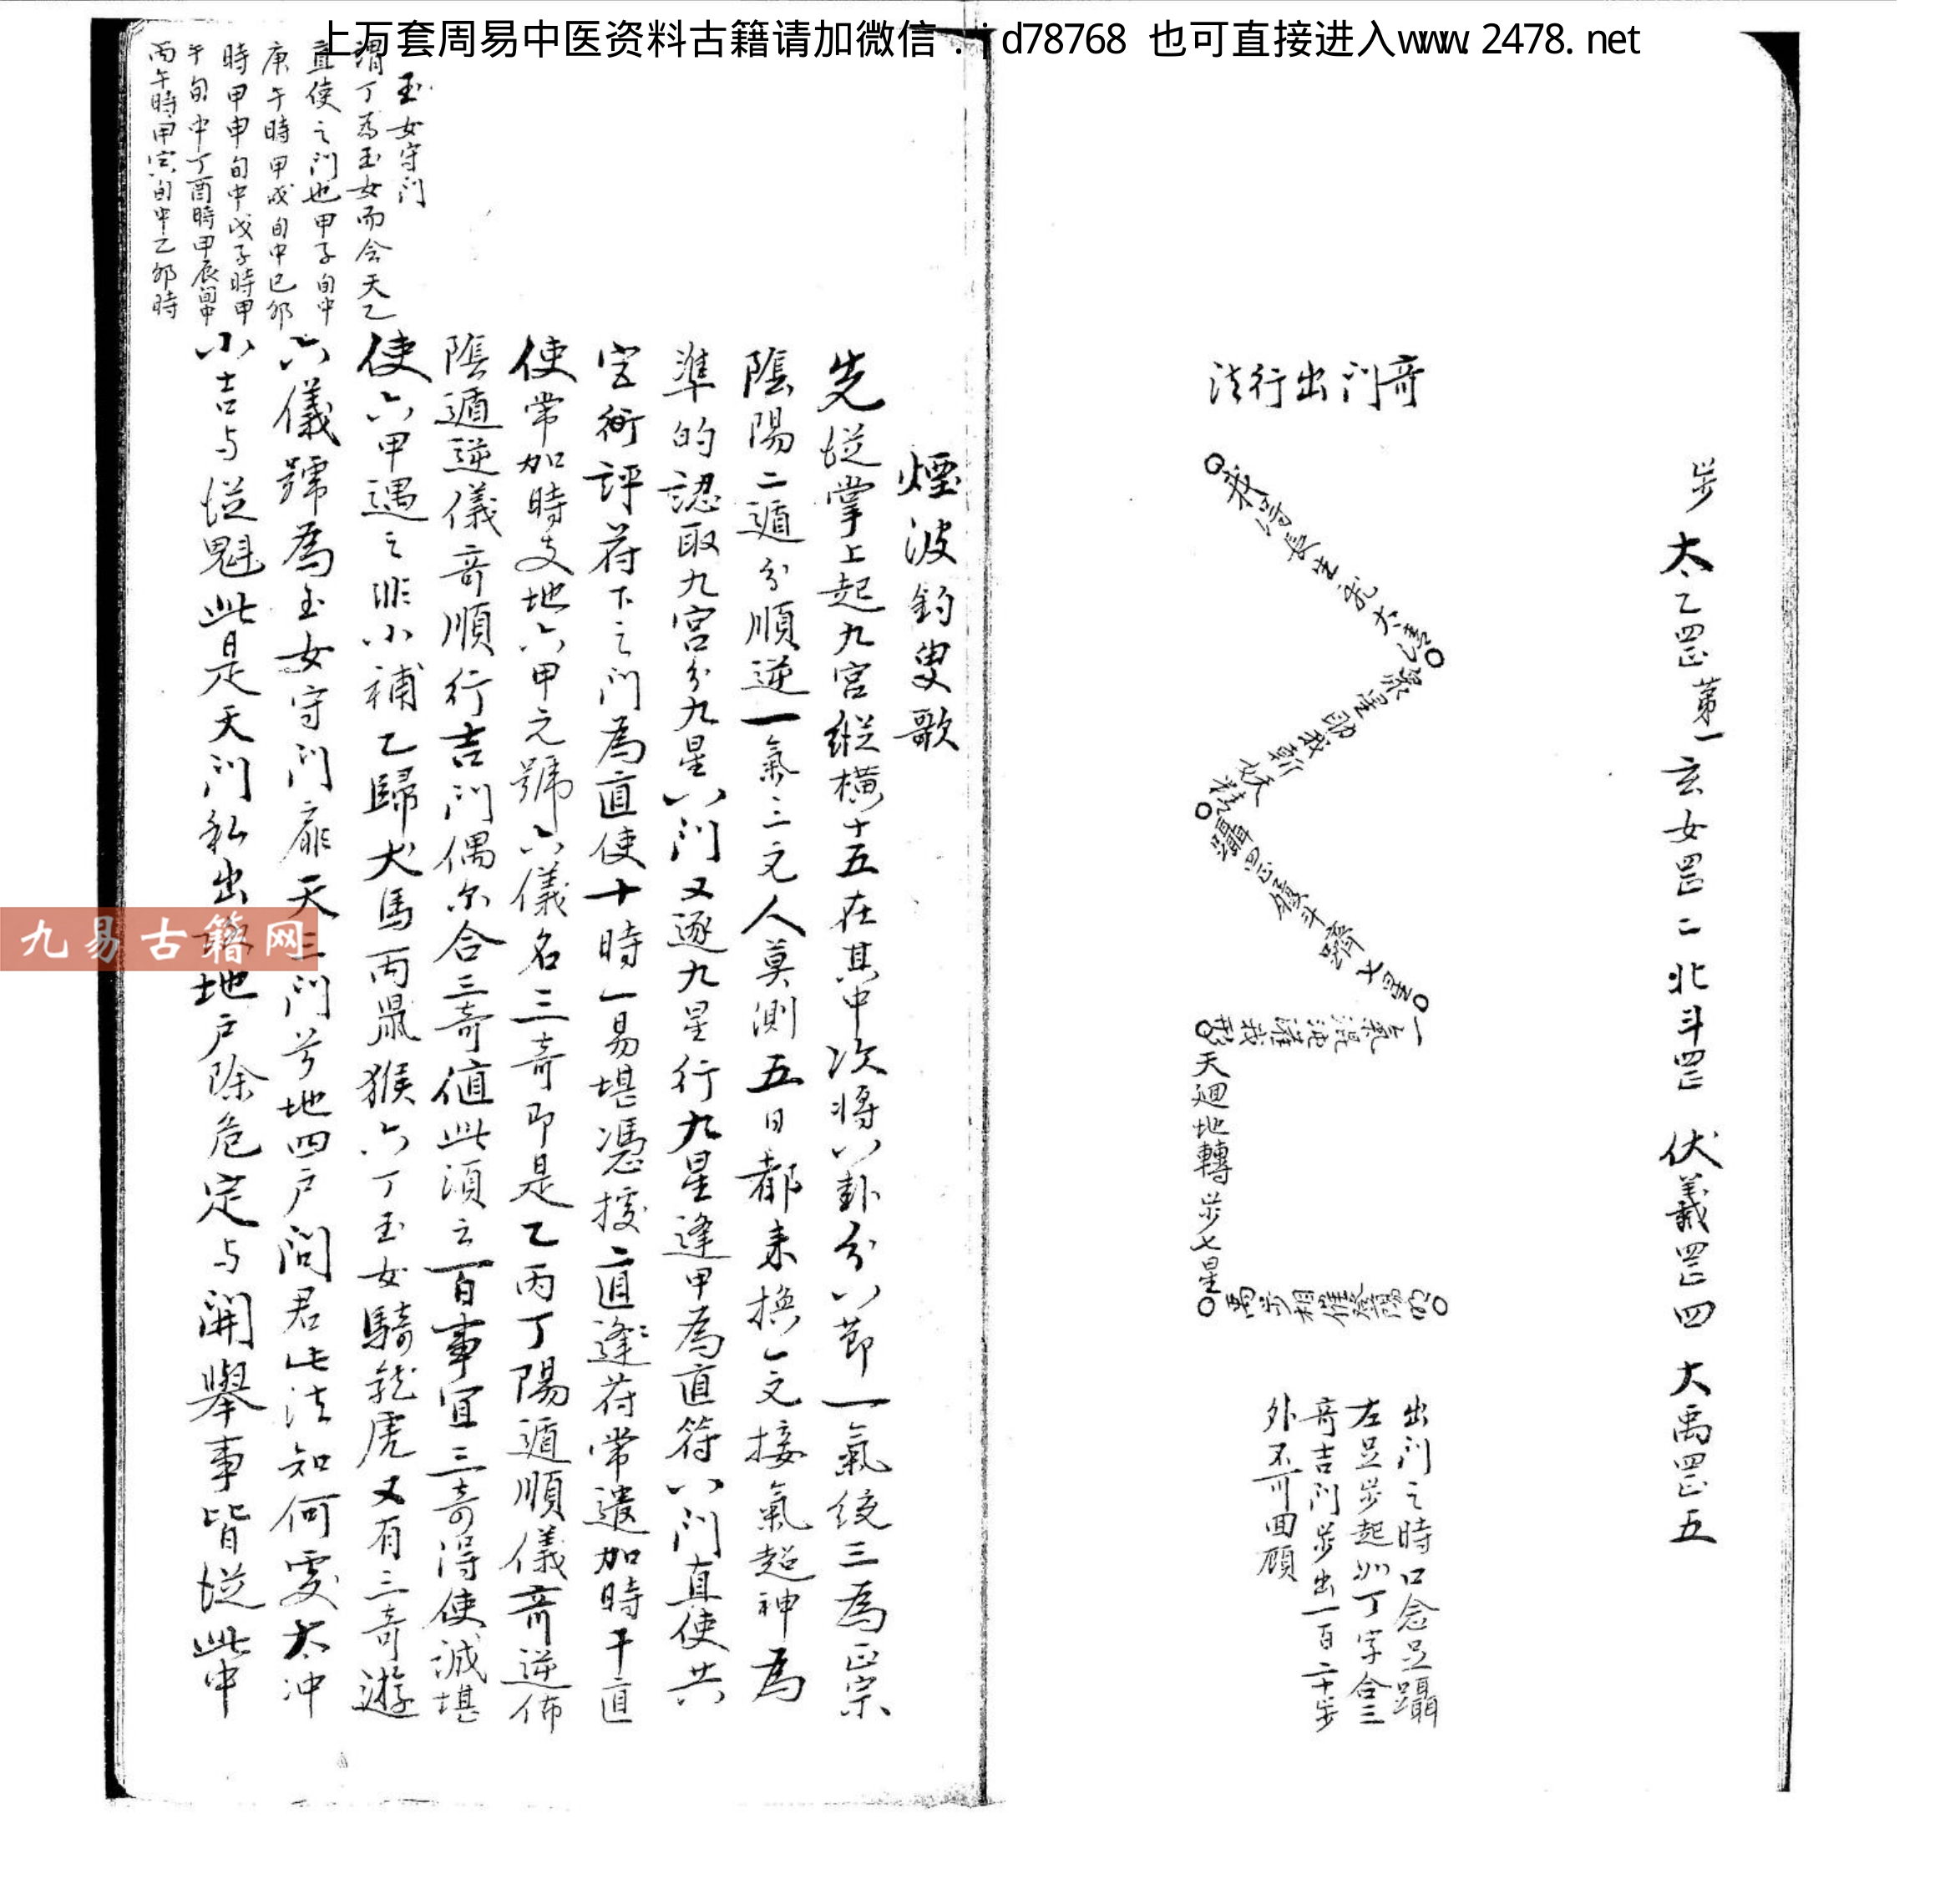 上万套周易中医资料古籍请加微信:jd78768 也可直接进入www.2478.net
步 太乙罡第一玄女罡二北斗罡 伏羲罡四 大禹罡五
奇门出行法
天罡大
众星助我斬妖精
躡罡履斗齊七星
一氣混沌灌我形
天迴地轉步七星
禹步相催登陽明
出门之時口念足躡
左足步起加丁字合三
奇吉门步出一百二十步
外不可回顾
煙波釣叟歌
先從掌上起九宮縱横十五在其中次将八卦分八節一氣统三為正宗
陰陽二遁分順逆一氣三元人莫測五日都来换一元接氣超神為
準的認取九宮分九星八门又逐九星行九星逢甲為直符八门直使共
宫衝評苻下之门為直使十時一易堪憑據直逢苻常遣加時干直
使常加時支地六甲元號六儀名三奇即是乙丙丁陽遁順儀奇逆佈
陰遁逆儀奇順行吉门偶尔合三奇值此須云百事宜三奇得使誠堪
使六甲遇之非小補乙歸犬馬丙鼠猴六丁玉女騎龍虎又有三奇遊
六儀號為玉女守门扉天三门兮地四户問君此法知何處太冲
小吉与從魁此是天门私出路地户除危定与開舉事皆從此中
玉女守门
謂丁為玉女而会天乙
直使之门也甲子旬中
庚午時甲戌旬中已卯
時甲申旬中戊子時甲
午旬中丁酉時甲辰旬中
丙午時甲寅旬中乙卯時
九易古籍网